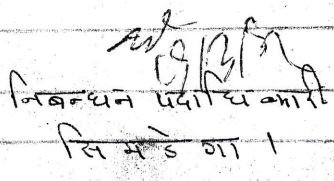 निबन्धन पदाधिकारी
सिमडेगा ।